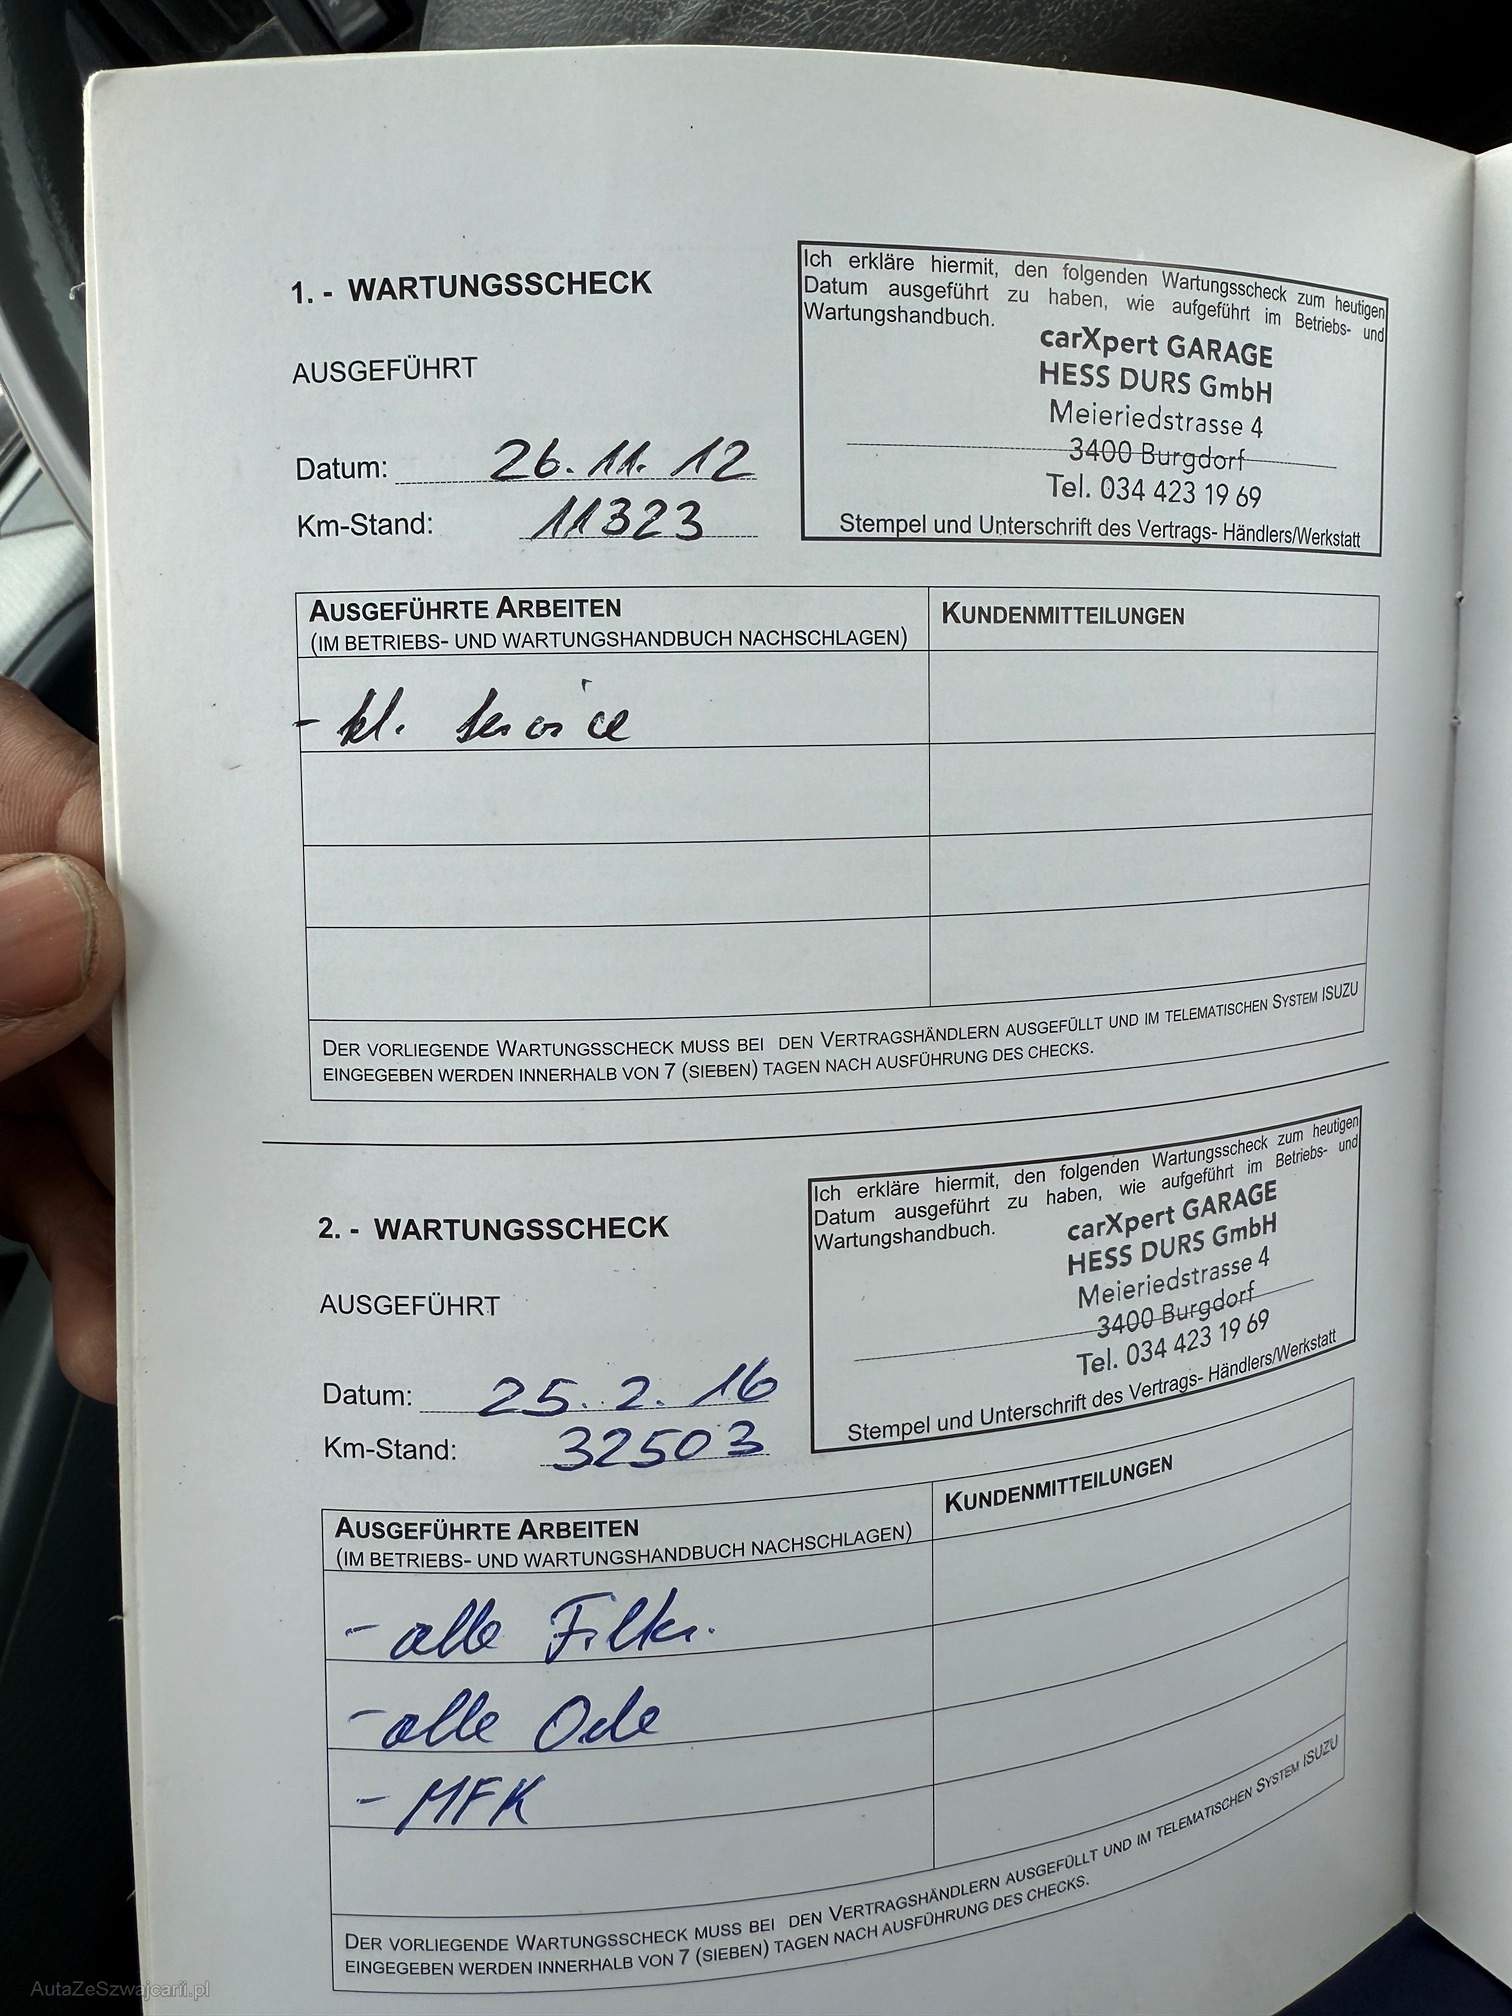 1. - WARTUNGSSCHECK
AUSGEFÜHRT
Datum: 26.11.12
Km-Stand: 11323
Ich erkläre hiermit, den folgenden Wartungsscheck zum heutigen
Datum ausgeführt zu haben, wie aufgeführt im Betriebs- und
Wartungshandbuch.
carXpert GARAGE
HESS DURS GmbH
Meieriedstrasse 4
3400 Burgdorf
Tel. 034 423 19 69
Stempel und Unterschrift des Vertrags- Händlers/Werkstatt
AUSGEFÜHRTE ARBEITEN
(IM BETRIEBS- UND WARTUNGSHANDBUCH NACHSCHLAGEN)
KUNDENMITTEILUNGEN
- kl. Service
DER VORLIEGENDE WARTUNGSSCHECK MUSS BEI DEN VERTRAGSHÄNDLERN AUSGEFÜLLT UND IM TELEMATISCHEN SYSTEM ISUZU
EINGEGEBEN WERDEN INNERHALB VON 7 (SIEBEN) TAGEN NACH AUSFÜHRUNG DES CHECKS.
2. - WARTUNGSSCHECK
AUSGEFÜHRT
Datum: 25.2.16
Km-Stand: 32503
Ich erkläre hiermit, den folgenden Wartungsscheck zum heutigen
Datum ausgeführt zu haben, wie aufgeführt im Betriebs- und
Wartungshandbuch.
carXpert GARAGE
HESS DURS GmbH
Meieriedstrasse 4
3400 Burgdorf
Tel. 034 423 19 69
Stempel und Unterschrift des Vertrags- Händlers/Werkstatt
AUSGEFÜHRTE ARBEITEN
(IM BETRIEBS- UND WARTUNGSHANDBUCH NACHSCHLAGEN)
KUNDENMITTEILUNGEN
- alle Filter.
- alle Oele
- MFK
DER VORLIEGENDE WARTUNGSSCHECK MUSS BEI DEN VERTRAGSHÄNDLERN AUSGEFÜLLT UND IM TELEMATISCHEN SYSTEM ISUZU
EINGEGEBEN WERDEN INNERHALB VON 7 (SIEBEN) TAGEN NACH AUSFÜHRUNG DES CHECKS.
AutaZeSzwajcarii.pl